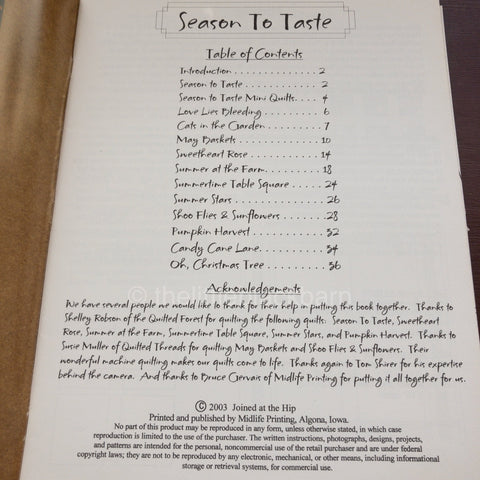 Season To Taste
Table of Contents
Introduction . . . . . . . . . . . . . 2
Season to Taste . . . . . . . . . . . . 2
Season to Taste Mini Quilts. . . . 4
Love Lies Bleeding . . . . . . . . . 6
Cats in the Garden . . . . . . . . 7
May Baskets . . . . . . . . . . . . . 10
Sweetheart Rose . . . . . . . . . . 14
Summer at the Farm. . . . . . . . 18
Summertime Table Square . . . . 24
Summer Stars . . . . . . . . . . . . 26
Shoo Flies & Sunflowers . . . . . . 28
Pumpkin Harvest . . . . . . . . . . 32
Candy Cane Lane. . . . . . . . . . 34
Oh, Christmas Tree . . . . . . . . 36
Acknowledgements
We have several people we would like to thank for their help in putting this book together. Thanks to
Shelley Robson of the Quilted Forest for quilting the following quilts: Season To Taste, Sweetheart
Rose, Summer at the Farm, Summertime Table Square, Summer Stars, and Pumpkin Harvest. Thanks to
Susie Muller of Quilted Threads for quilting May Baskets and Shoo Flies & Sunflowers. Their
wonderful machine quilting makes our quilts come to life. Thanks again to Tom Shirer for his expertise
behind the camera. And thanks to Bruce Gervais of Midlife Printing for putting it all together for us.
© 2003 Joined at the Hip
Printed and published by Midlife Printing, Algona, Iowa.
No part of this product may be reproduced in any form, unless otherwise stated, in which case
reproduction is limited to the use of the purchaser. The written instructions, photographs, designs, projects,
and patterns are intended for the personal, noncommercial use of the retail purchaser and are under federal
copyright laws; they are not to be reproduced by any electronic, mechanical, or other means, including informational
storage or retrieval systems, for commercial use.